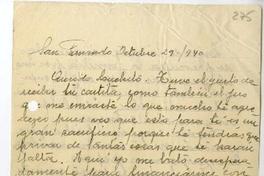 275
San Fernando Octubre 29/940
Querido Luchito. Tuve el gusto de
recibir tu cartita, como también el peso
que me enviaste lo que mucho te agra-
dezco pues veo que esto para ti es un
gran sacrificio porque te tendrás que
privar de tantas cosas que te harán
falta. Aquí yo me bato desespera-
damente para financiarme con